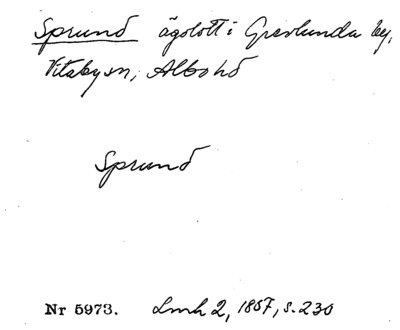 Sprund ägolott i Grevlunda by,
Vitaby sn, Albo hd
Sprund
Nr 5973. Lmh 2, 1857, s. 230